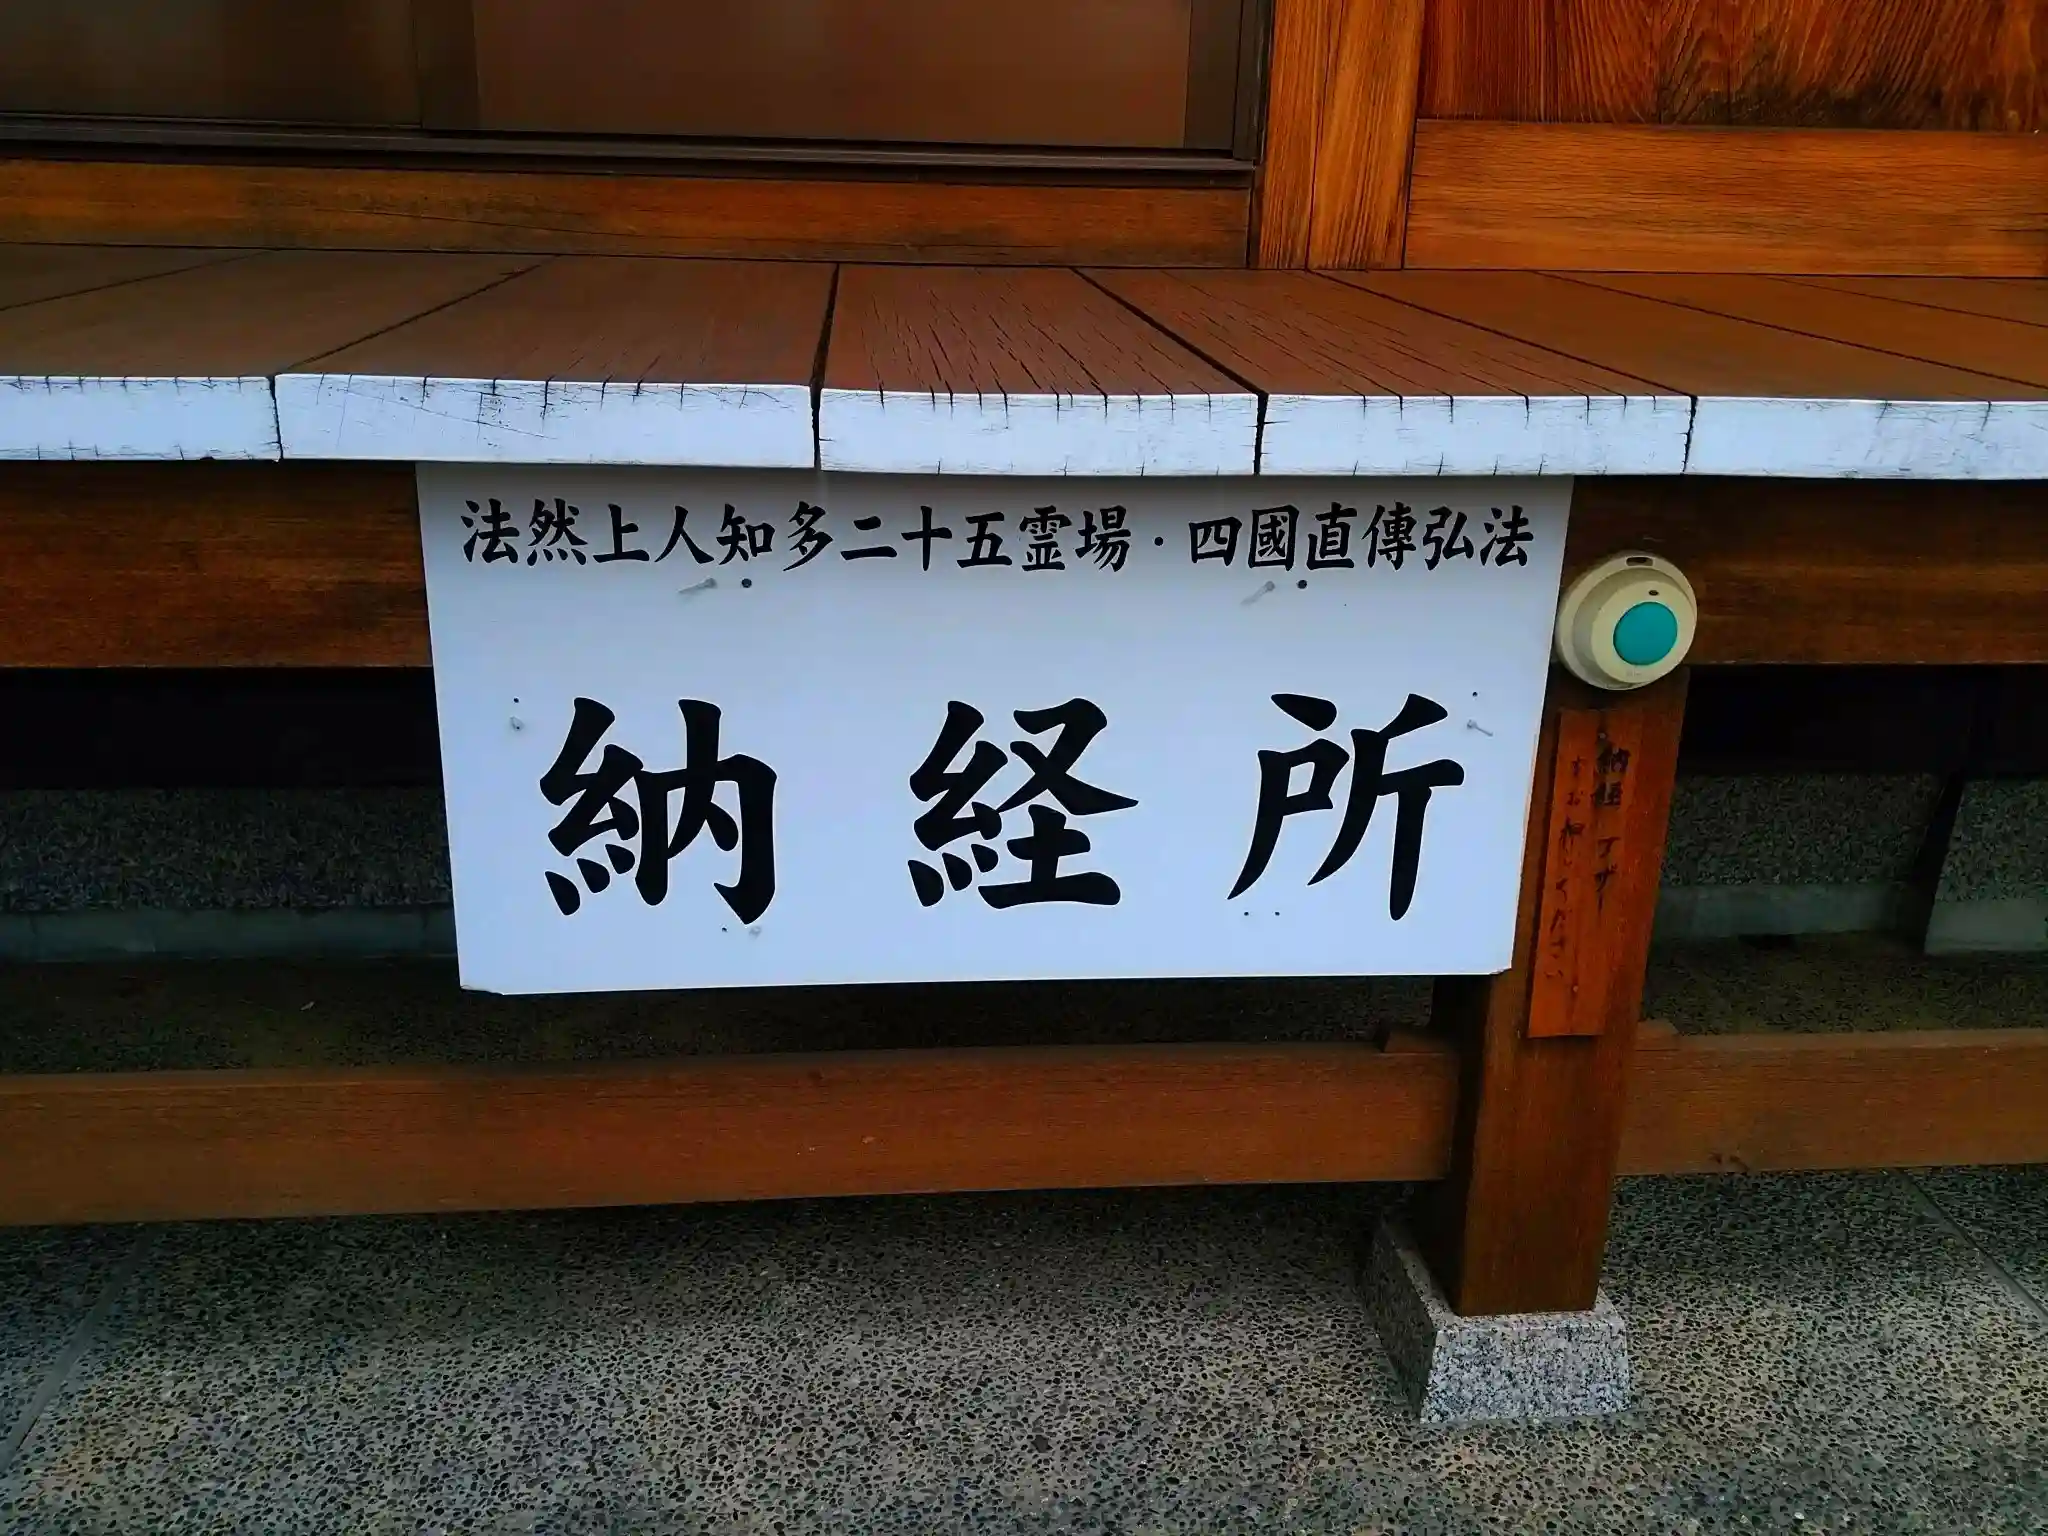 法然上人知多二十五霊場・四國直傳弘法
納経所
納経ブザー
をお押しください